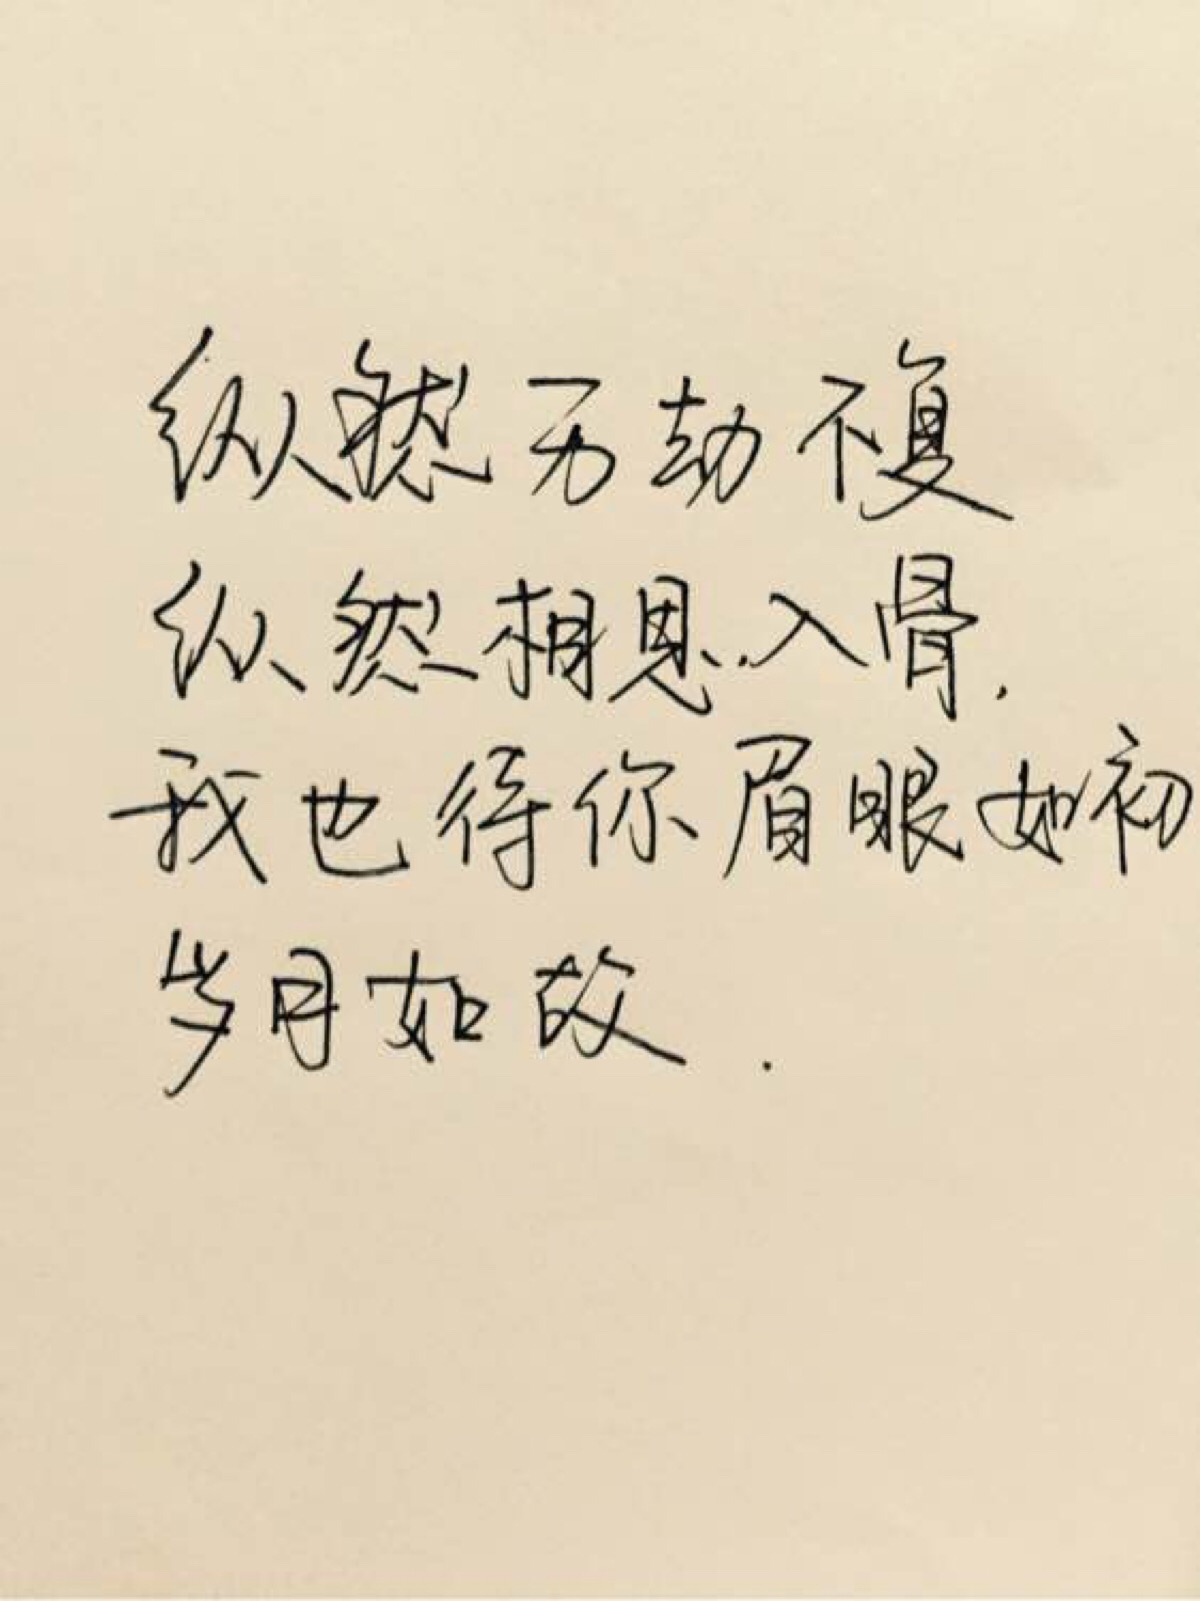 纵然万劫不复
纵然相思入骨.
我也待你眉眼如初
岁月如故.